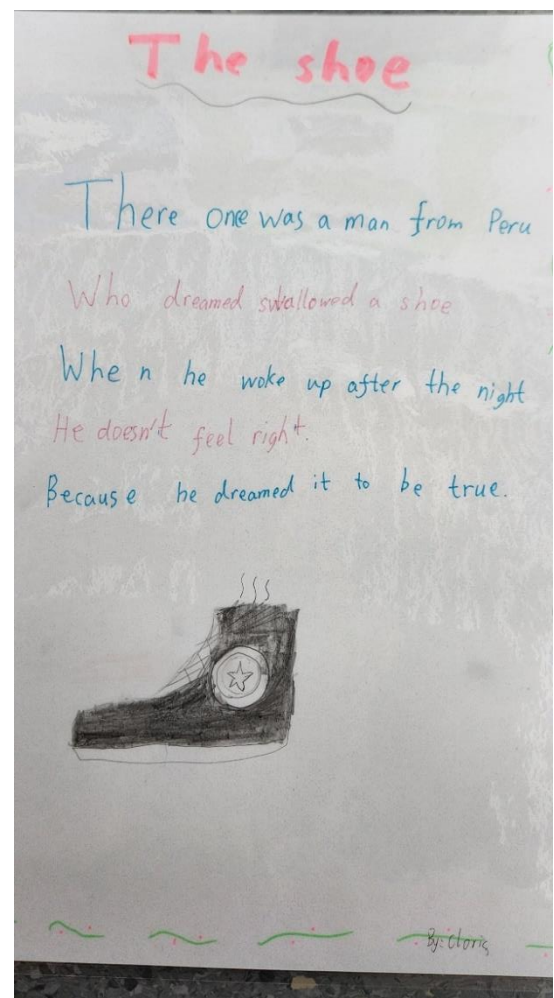 The shoe
There one was a man from Peru
Who dreamed swallowed a shoe
When he woke up after the night
He doesn't feel right.
Because he dreamed it to be true.
By: Cloris